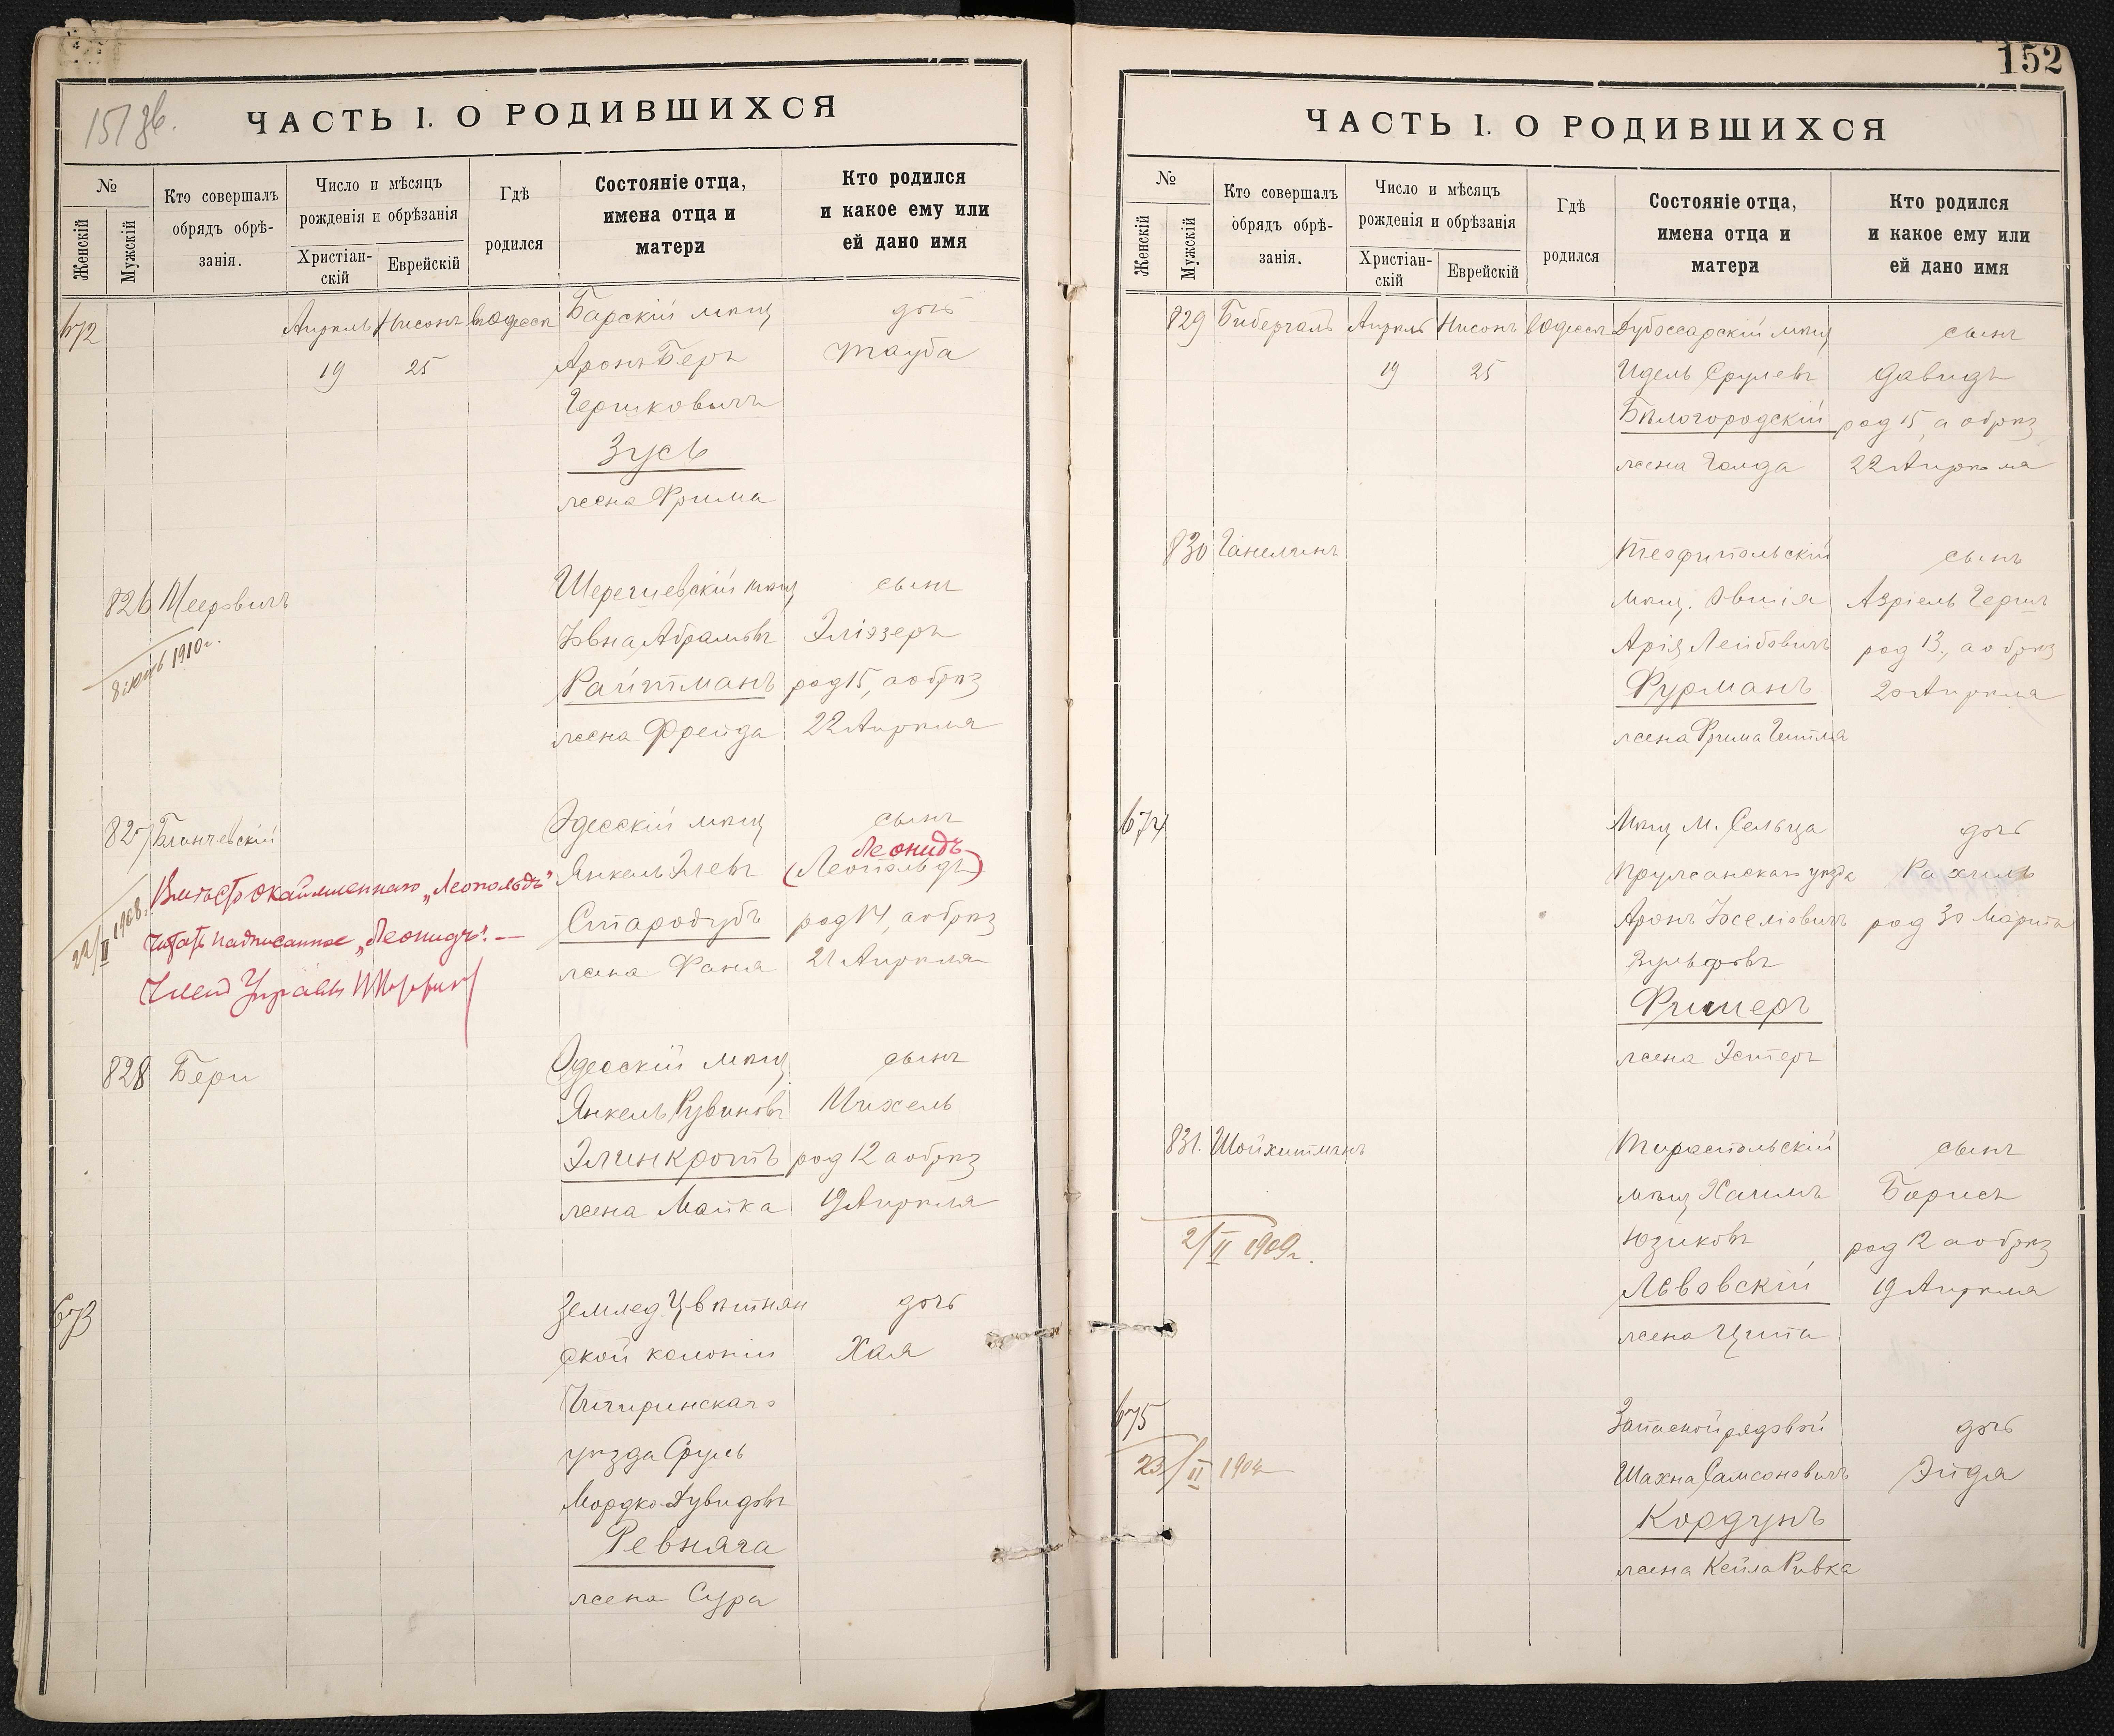 151 зв.
ЧАСТЬ I. О РОДИВШИХСЯ
№
Женскій
Мужскій
Кто совершалъ
обрядъ обрѣ-
занія.
Число и мѣсяцъ
рожденія и обрѣзанія
Христіан-
скій
Еврейскій
Гдѣ
родился
Состояніе отца,
имена отца и
матери
Кто родился
и какое ему или
ей дано имя
672 Апрѣль Нисонъ въ Одессѣ Барскій мѣщ дочь
19 25 Аронъ Беръ Тауба
Гершковичъ
Зусь
жена Фрима
826 Мееровичъ Шерешевскій мѣщ сынъ
Іовна Абрамовъ Эліэзеръ
8 1910г. Райтманъ род 15, а обрѣз
жена Фрейда 22 Апрѣля
827 Одесскій мѣщ сынъ
Леонидъ
Янкель Элевъ (Леопольдъ)
Вмѣсто окаймленнаго „Леопольдъ"
22/II 1908. Стародубъ род 14, а обрѣз
читать надписанное „Леонидъ". —
жена Фаня 21 Апрѣля
Членъ Управы
828 Бери Одесскій мѣщ сынъ
Янкель Рувиновъ Михель
Элинкротъ род 12 а обрѣз
жена Майка 19 Апрѣля
673 Землед. Цвѣтнян дочь
ской колоніи Хая
Чигиринскаго
уѣзда Сруль
Мордко Дувидовъ
Ревняга
жена Сура
152
ЧАСТЬ I. О РОДИВШИХСЯ
№
Женскій
Мужскій
Кто совершалъ
обрядъ обрѣ-
занія.
Число и мѣсяцъ
рожденія и обрѣзанія
Христіан-
скій
Еврейскій
Гдѣ
родился
Состояніе отца,
имена отца и
матери
Кто родился
и какое ему или
ей дано имя
829 Бибергалъ Апрѣль Нисонъ въ Одессѣ Дубоссарскій мѣщ сынъ
19 25 Идель Срулевъ Давидъ
Бѣлогородскій род 15, а обрѣз
жена Голда 22 Апрѣля
830 Ганелинъ Теофипольскій сынъ
мѣщ. Овшія Азріель Герш
Арія Лейбовичъ род 13, а обрѣз
Фурманъ 20 Апрѣля
жена Фрима Гитля
674 Мѣщ м. Сельца дочь
Пружанскаго уѣзда Рахиль
Аронъ Іоселіовичъ род 30 Марта
Вульфовъ
Фишеръ
жена Эстеръ
831. Шойхитманъ Тираспольскій сынъ
мѣщ Хаимъ Борисъ
2/II 1909г. Юзиковъ род 12 а обрѣз
Львовскій 19 Апрѣля
жена Ципа
675 Запасной рядовой дочь
23/II Шахна Самсоновичъ Эйдя
Кордунъ
жена Кейла Ривка